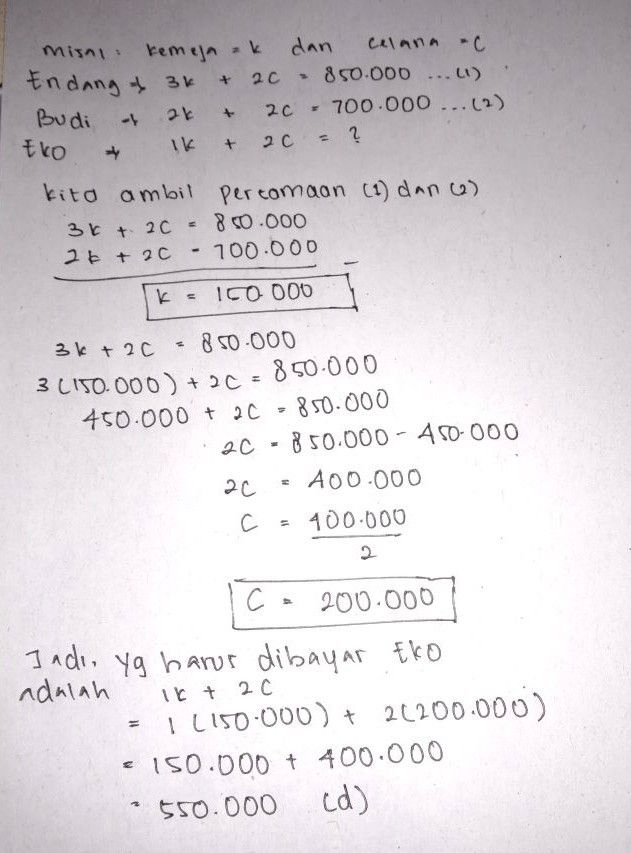 Misal : kemeja = k dan celana = C
Endang → 3k + 2C = 850.000 ...(1)
Budi → 2k + 2C = 700.000 ...(2)
Eko → 1k + 2C = ?
kita ambil persamaan (1) dan (2)
3k + 2C = 850.000
2k + 2C = 700.000 −
k = 150.000
3k + 2C = 850.000
3(150.000) + 2C = 850.000
450.000 + 2C = 850.000
2C = 850.000 - 450.000
2C = 400.000
C = 400.000
2
C = 200.000
Jadi, yg harus dibayar Eko
adalah 1k + 2C
= 1(150.000) + 2(200.000)
= 150.000 + 400.000
= 550.000 (d)